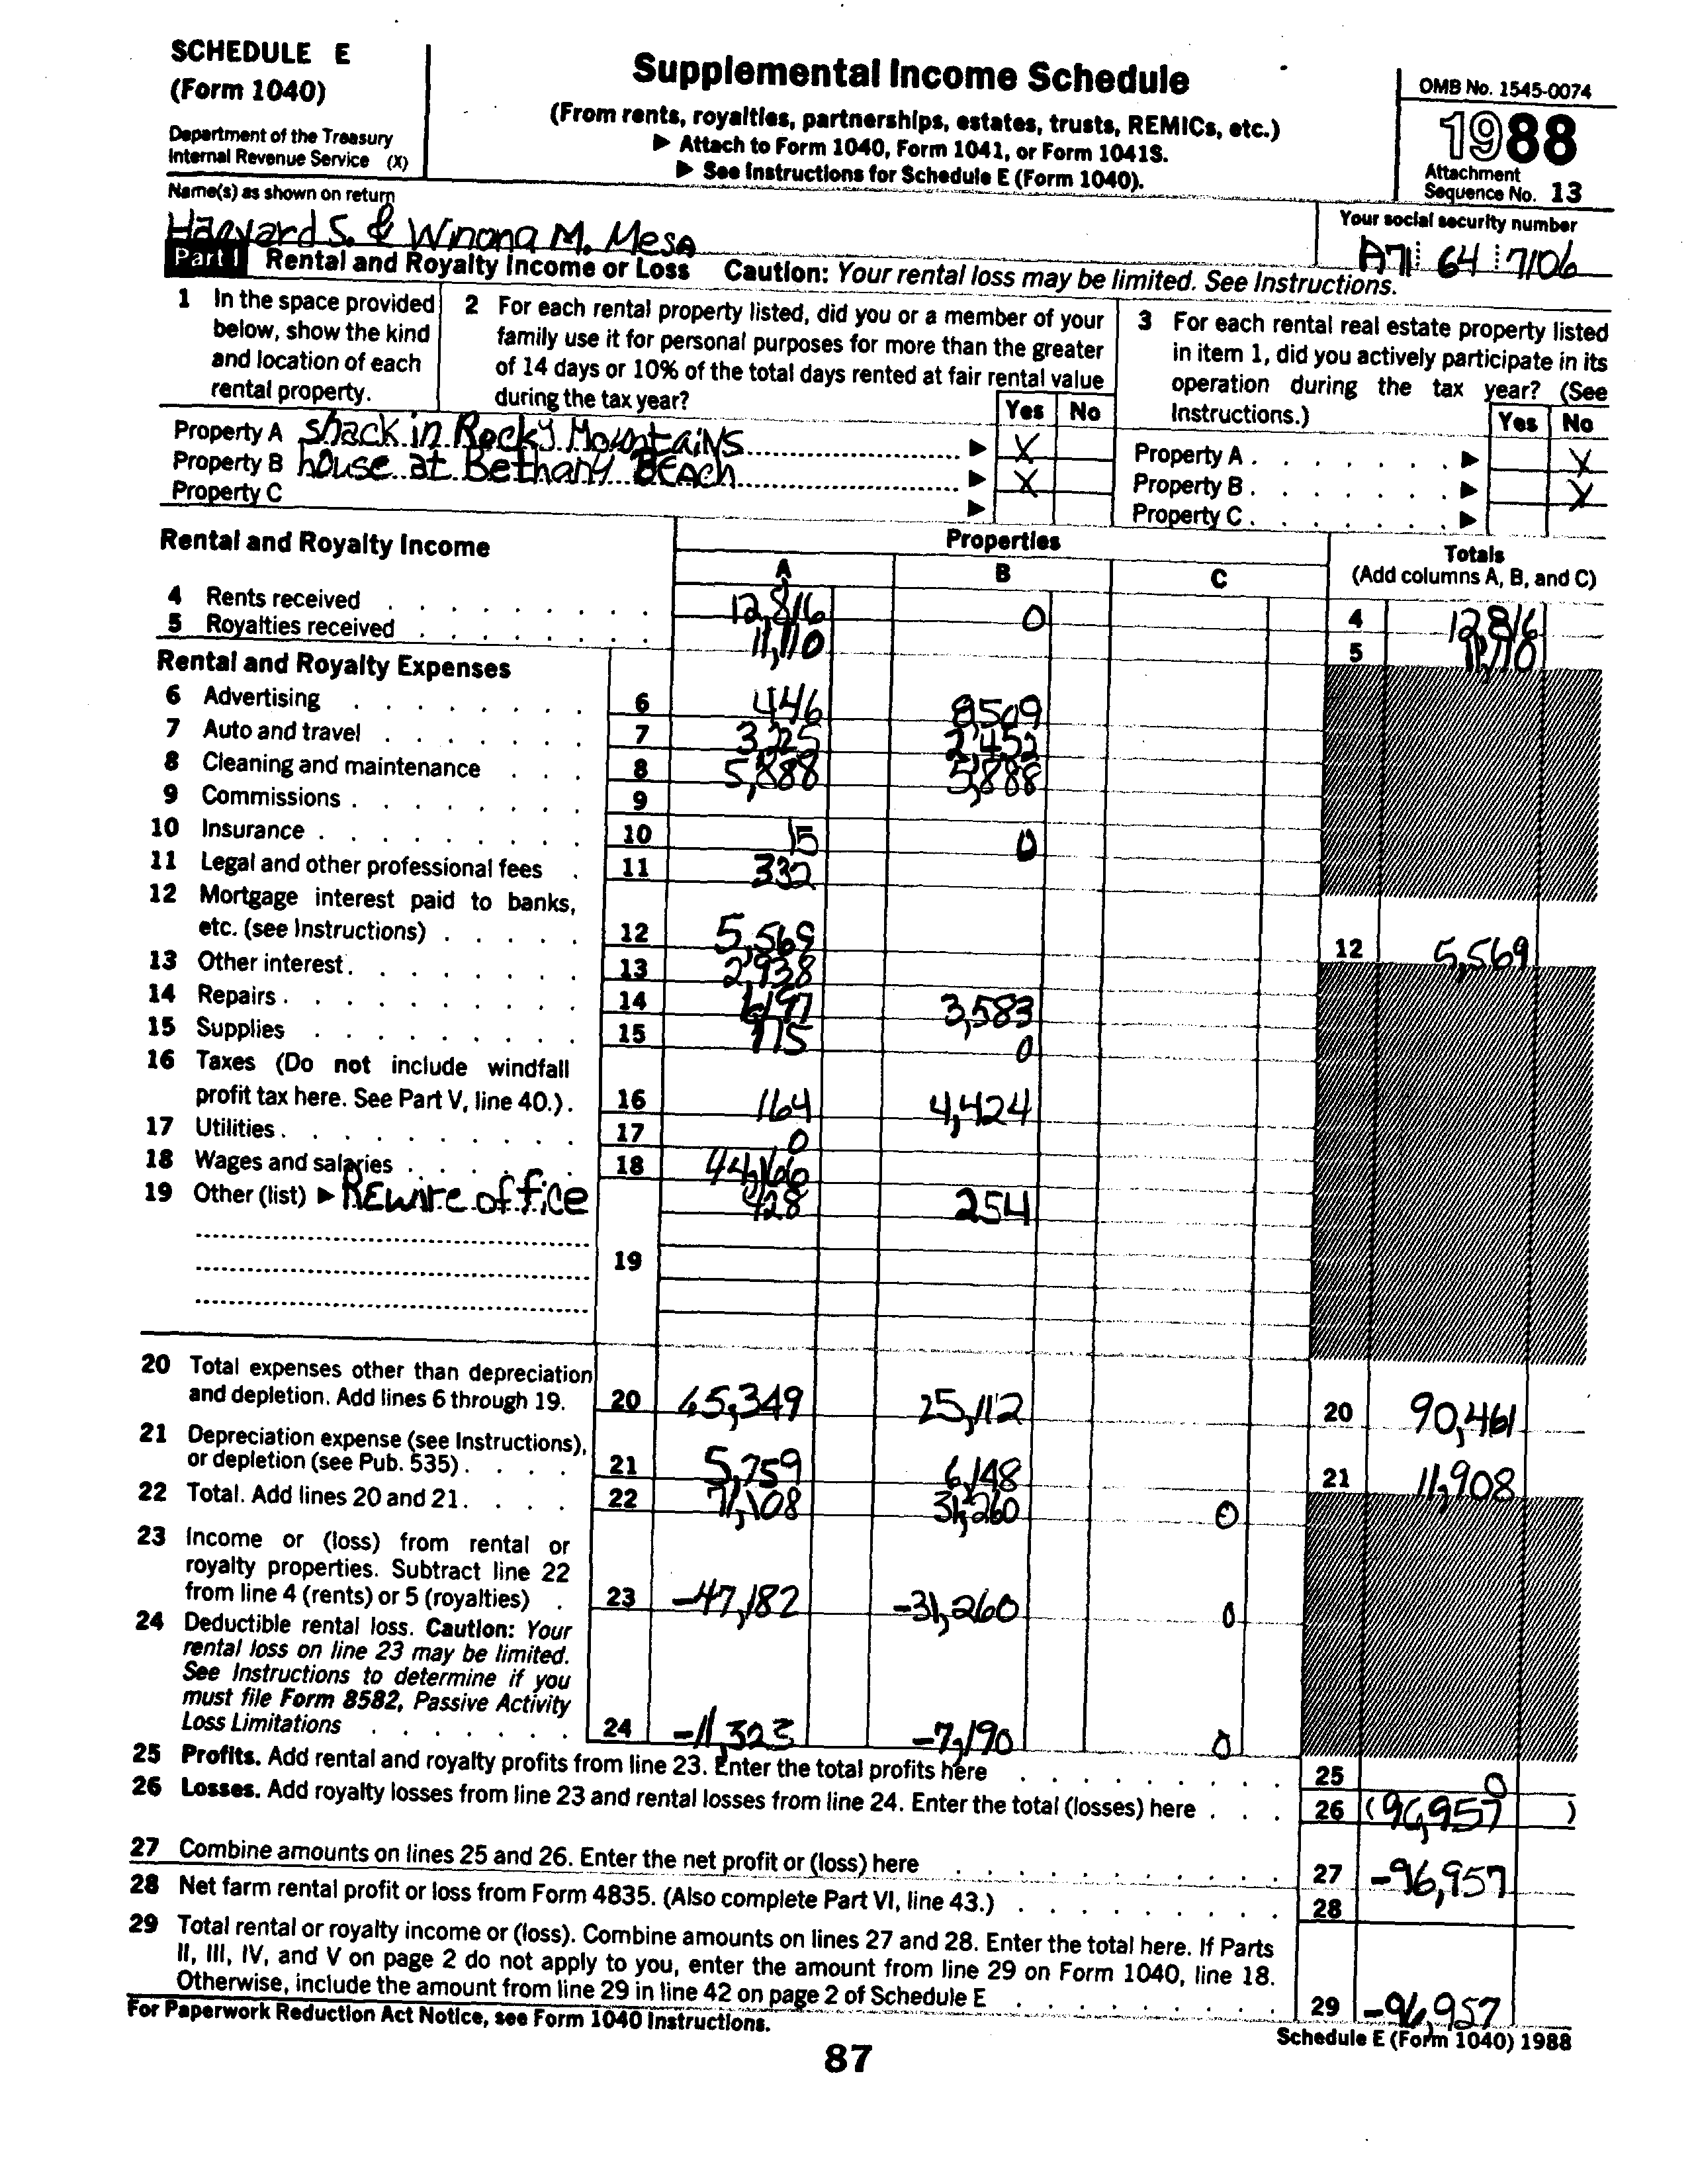 SCHEDULE E
(Form 1040)
Department of the Treasury
Internal Revenue Service (X)
Supplemental Income Schedule
(From rents, royalties, partnerships, estates, trusts, REMICs, etc.)
▶ Attach to Form 1040, Form 1041, or Form 1041S.
▶ See Instructions for Schedule E (Form 1040).
OMB No. 1545-0074
1988
Attachment
Sequence No. 13
Name(s) as shown on return
Harvard S. & Winona M. Mesa
Your social security number
A71 64 7106
Part I Rental and Royalty Income or Loss Caution: Your rental loss may be limited. See Instructions.
1 In the space provided below, show the kind and location of each rental property.
2 For each rental property listed, did you or a member of your family use it for personal purposes for more than the greater of 14 days or 10% of the total days rented at fair rental value during the tax year?
Yes No
3 For each rental real estate property listed in item 1, did you actively participate in its operation during the tax year? (See Instructions.)
Yes No
Property A shack in Rocky Mountains ▶ X Property A ▶ X
Property B house at Bethany BEAch ▶ X Property B ▶ X
Property C ▶ Property C ▶
Rental and Royalty Income
Properties
A B C
Totals
(Add columns A, B, and C)
4 Rents received 12,816 0 4 12,816
5 Royalties received 11,110 5 11,110
Rental and Royalty Expenses
6 Advertising 6 446 8509
7 Auto and travel 7 3,225 2,452
8 Cleaning and maintenance 8 5,888 5,888
9 Commissions 9
10 Insurance 10 15 0
11 Legal and other professional fees 11 332
12 Mortgage interest paid to banks,
etc. (see Instructions) 12 5,569 12 5,569
13 Other interest 13 2,938
14 Repairs 14 3,583
15 Supplies 15 0
16 Taxes (Do not include windfall
profit tax here. See Part V, line 40.) 16 164 4,424
17 Utilities 17 0
18 Wages and salaries 18 44,166
19 Other (list) ▶ REwire office 428 254
19
20 Total expenses other than depreciation
and depletion. Add lines 6 through 19. 20 65,349 25,112 20 90,461
21 Depreciation expense (see Instructions),
or depletion (see Pub. 535) 21 5,759 6,148 21 11,908
22 Total. Add lines 20 and 21 22 71,108 31,260 0
23 Income or (loss) from rental or
royalty properties. Subtract line 22
from line 4 (rents) or 5 (royalties) 23 -47,182 -31,260 0
24 Deductible rental loss. Caution: Your
rental loss on line 23 may be limited.
See Instructions to determine if you
must file Form 8582, Passive Activity
Loss Limitations 24 -11,323 -7,190 0
25 Profits. Add rental and royalty profits from line 23. Enter the total profits here 25 0
26 Losses. Add royalty losses from line 23 and rental losses from line 24. Enter the total (losses) here 26 (96,957)
27 Combine amounts on lines 25 and 26. Enter the net profit or (loss) here 27 -96,957
28 Net farm rental profit or loss from Form 4835. (Also complete Part VI, line 43.) 28
29 Total rental or royalty income or (loss). Combine amounts on lines 27 and 28. Enter the total here. If Parts
II, III, IV, and V on page 2 do not apply to you, enter the amount from line 29 on Form 1040, line 18.
Otherwise, include the amount from line 29 in line 42 on page 2 of Schedule E 29 -96,957
For Paperwork Reduction Act Notice, see Form 1040 Instructions.
Schedule E (Form 1040) 1988
87